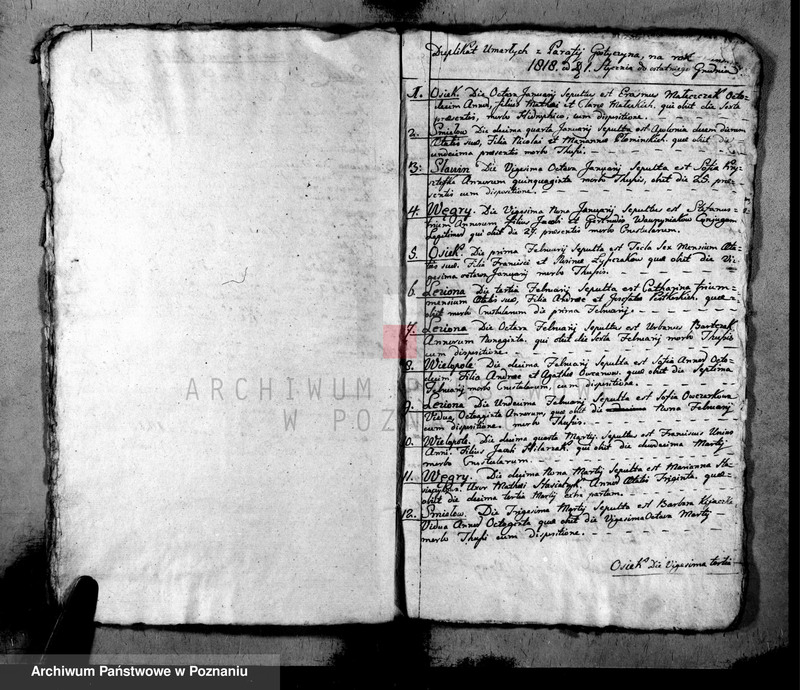 Duplikat Umarłych z Parafij Gostyczyna, na rok
1818. od 1. Stycznia do ostatniego Grudnia
1. Osiek. Die Octava Januarij Sepultus est Erasmus Małeczek Octo=
decim Annor, filius Mathei et Clara qui obiit die Sexta
praesentis, morbo Hidropisico, cum dispositione.
2. Smielow Die decima quarta Januarij Sepulta est Apolonia duodecim dierum
Aetatis suae, Filia Nicolai et Marianna quae obiit die
undecima praesentis morbo Thusi.
3. Slawin Die Vigesima Octava Januarij Sepulta est Sofia
Annorum quinquaginta morbo Thusis, obiit die 25. prae=
sentis cum dispositione.
4. Węgry. Die Vigesima Nona Januarij Sepultus est Stefanus
trium Annorum filius Jacobi et Gertrudis Wawrzyniakow Conjugum
Legitimor qui obiit die 27. praesentis morbo Crustularum.
5. Osiek. Die prima Februarij Sepulta est Tecla Sex Mensium Aeta=
tis suae, Filia Francisci et quae obiit die Vi=
gesima octava Januarij morbo Thusis.
6. Leziona Die tertia Februarij Sepulta est Catharina trium
mensium Aetatis suae, Filia Andreae et Josepha quae
obiit morbo Crustularum die prima Februarij.
7. Leziona Die Octava Februarij Sepultus est Urbanus Bartczak
Annorum Nonaginta, qui obiit die Sexta Februarij morbo Thusis
cum dispositione.
8. Wielopole Die decima Februarij Sepulta est Sofia Annor Octo=
decim, Filia Andreae et Agatha quae obiit die Septima
Februarij morbo Crustularum, cum dispositione.
9. Leziona Die Undecima Februarij Sepulta est Sofia Owczarkowa
Vidua, Octoaginta Annorum, quae obiit die Nona Februarij
cum dispositione morbo Thusis.
10. Wielopole. Die decima quarta Martij Sepultus est Franciscus Unius
Anni Filius Jacobi qui obiit die duodecima Martij
morbo Crustularum.
11. Węgry. Die decima Nona Martij Sepulta est Marianna
Uxor Mathei Annor Aetatis Triginta, quae
obiit die decima tertia Martij partum.
12. Smielow. Die Trigesima Martij Sepulta est Barbara
Vidua Annor Octoginta quae obiit die Vigesima Octava Martij
morbo Thusi cum dispositione.
Osiek Die Vigesima tertia
ARCHIWUM
W POZN
Archiwum Państwowe w Poznaniu